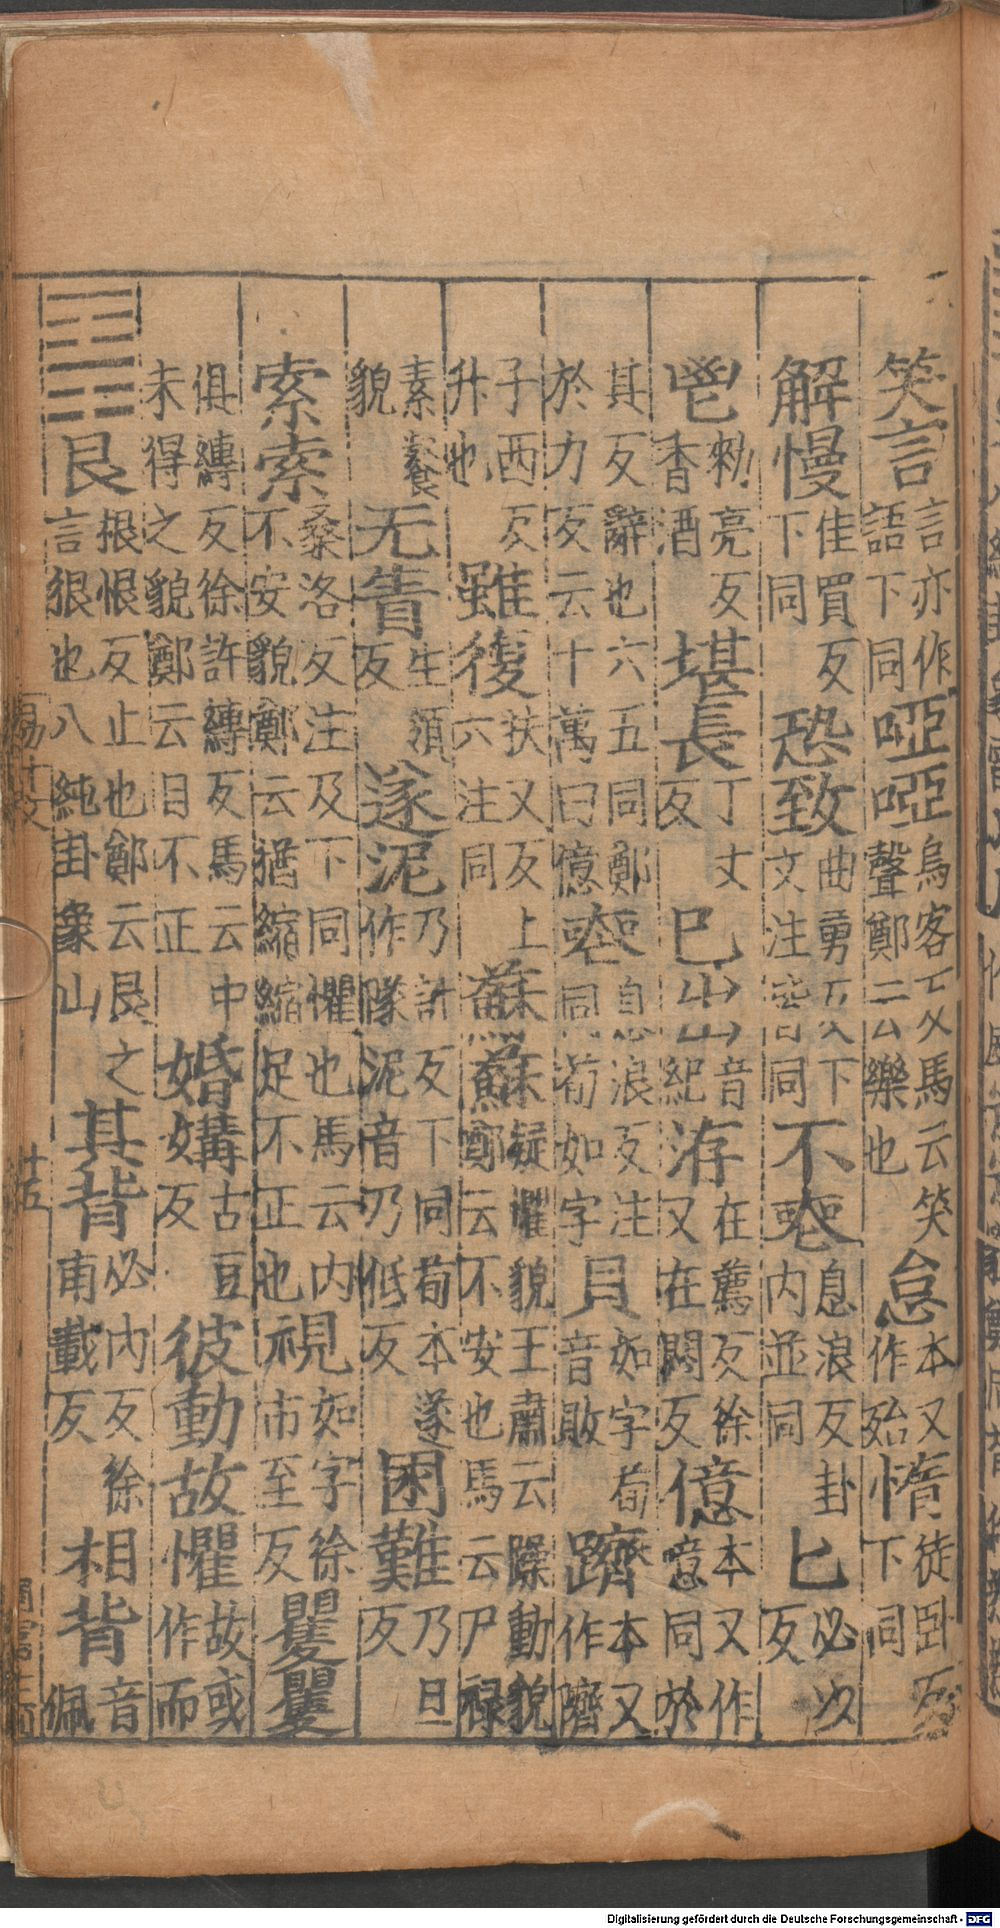 笑言言亦作語下同啞啞烏客反馬云笑聲鄭云樂也怠本又作殆惰徒卧反下同
解慢佳買反下同恐致曲勇反下文注皆同不喪息浪反卦内並同匕必以反
鬯勑亮反香酒堪長丁丈反巳出音紀洊在薦反徐又在悶反億本又作意同於
其反辭也六五同鄭於力反云十萬曰億喪息浪反注同荀如字貝如字荀音敗躋本又作隮
子西反升也雖復扶又反上六注同蘇蘇疑懼貌王肅云躁動貌鄭云不安也馬云尸禄
素餐貌无眚生須反遂泥乃計反下同荀本遂作隊泥音乃低反困難乃旦反
索索桑洛反注及下同懼也馬云内不安貌鄭云猶縮縮足不正也視如字徐市至反矍矍
俱縛反徐許縛反馬云中未得之貌鄭云目不正婚媾古豆反彼動故懼故或作而
䷳艮根恨反止也鄭云艮之言狠也八純卦象山其背必内反徐甫載反相背音佩
廿五
Digitalisierung gefördert durch die Deutsche Forschungsgemeinschaft - DFG